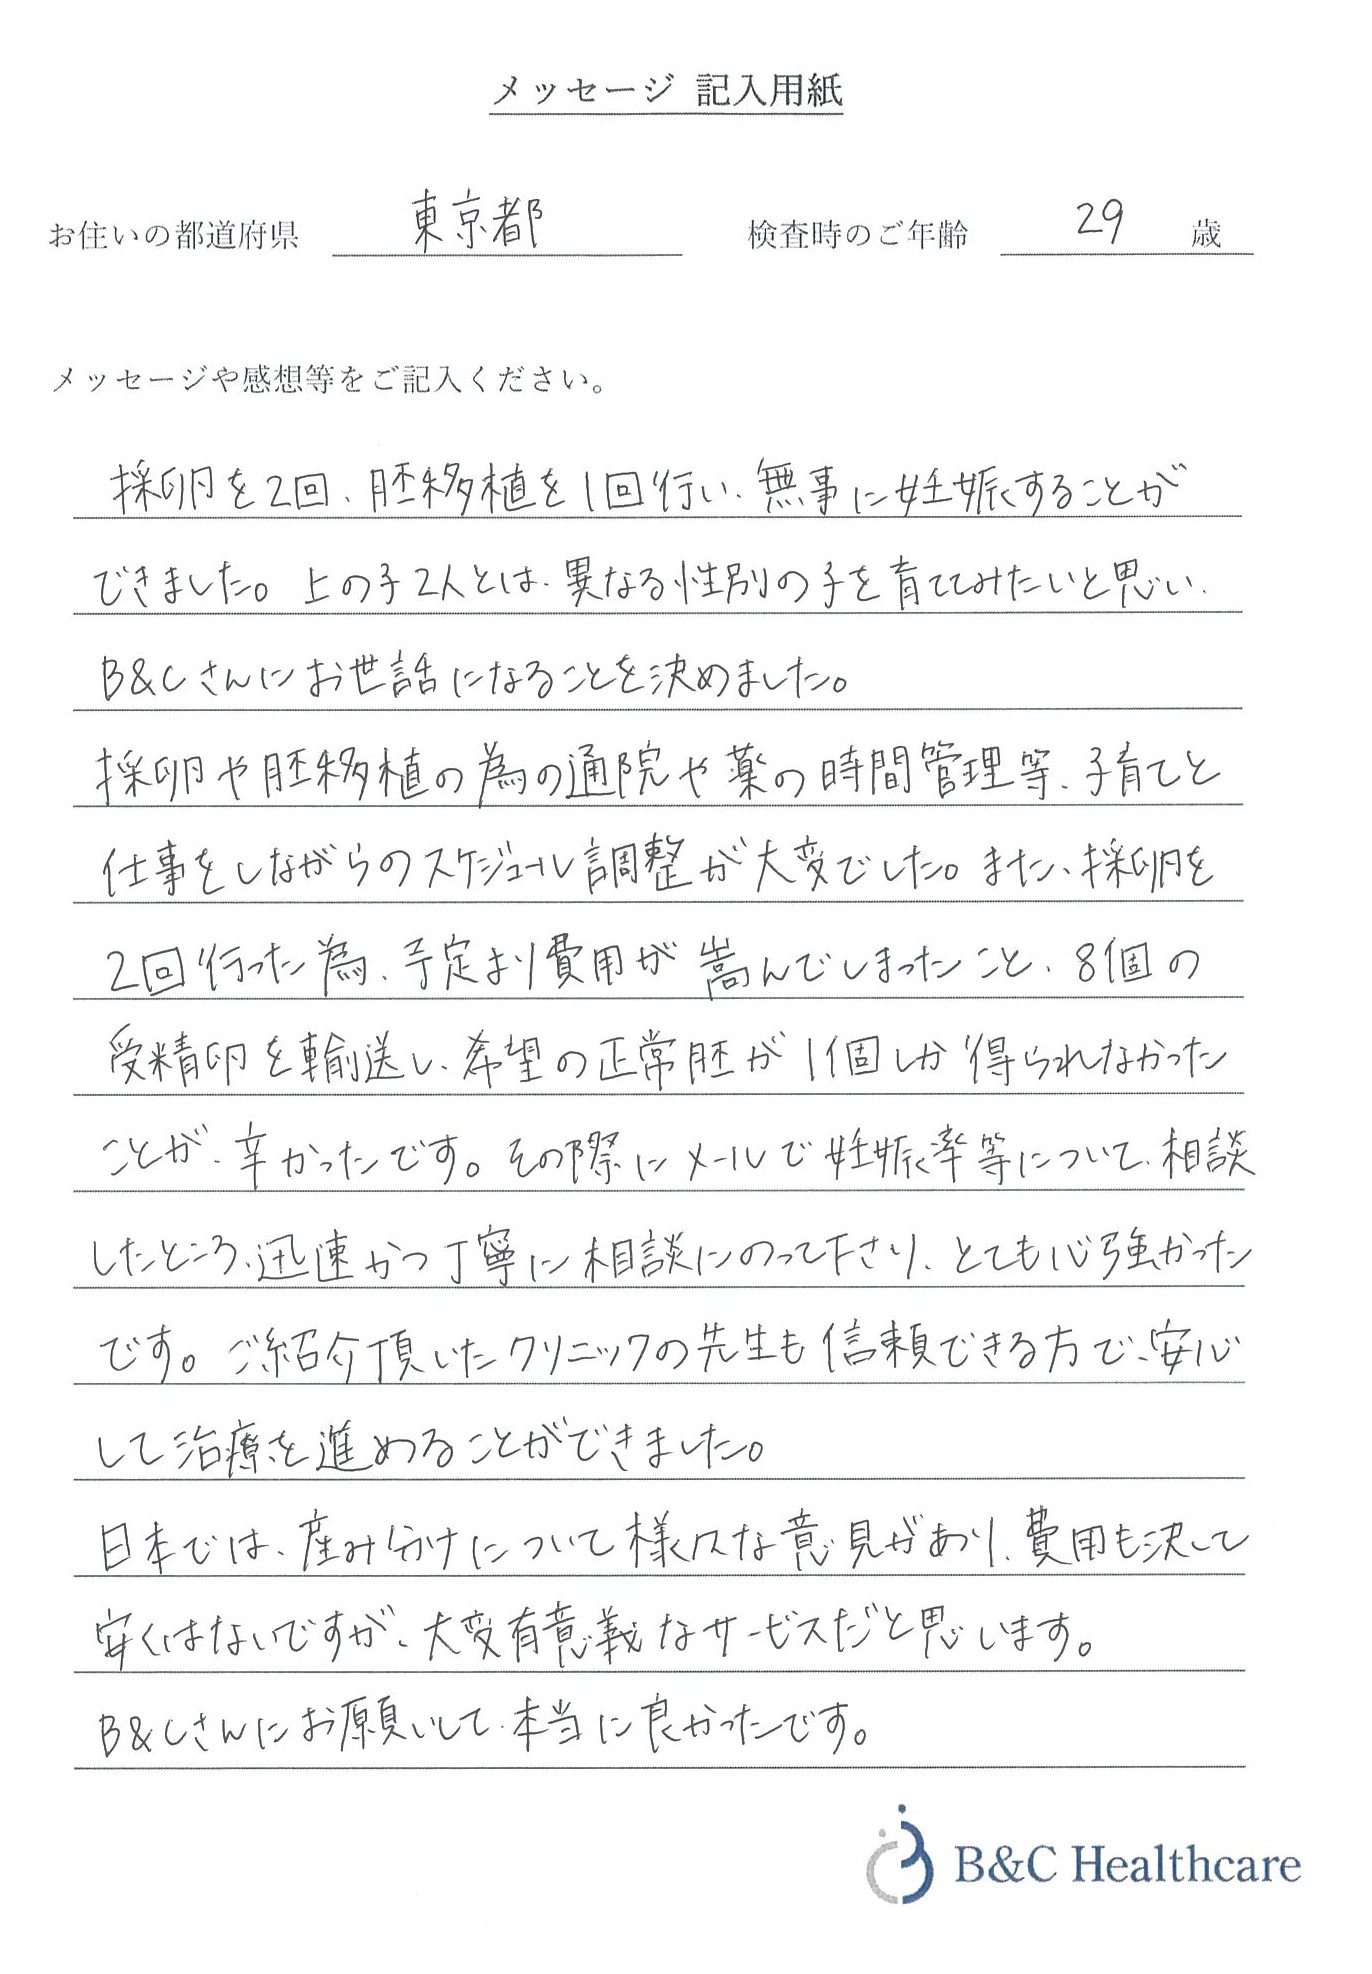 メッセージ 記入用紙
お住いの都道府県 東京都 検査時のご年齢 29 歳
メッセージや感想等をご記入ください。
採卵を2回、胚移植を1回行い、無事に妊娠することが
できました。上の子2人とは、異なる性別の子を育ててみたいと思い、
B&Cさんにお世話になることを決めました。
採卵や胚移植の為の通院や薬の時間管理等、子育てと
仕事をしながらのスケジュール調整が大変でした。また、採卵を
2回行った為、予定より費用が嵩んでしまったこと、8個の
受精卵を輸送し、希望の正常胚が1個しか得られなかった
ことが、辛かったです。その際にメールで妊娠率等について、相談
したところ、迅速かつ丁寧に相談にのって下さり、とても心強かった
です。ご紹介頂いたクリニックの先生も信頼できる方で、安心
して治療を進めることができました。
日本では、産み分けについて様々な意見があり、費用も決して
安くはないですが、大変有意義なサービスだと思います。
B&Cさんにお願いして、本当に良かったです。
B&C Healthcare